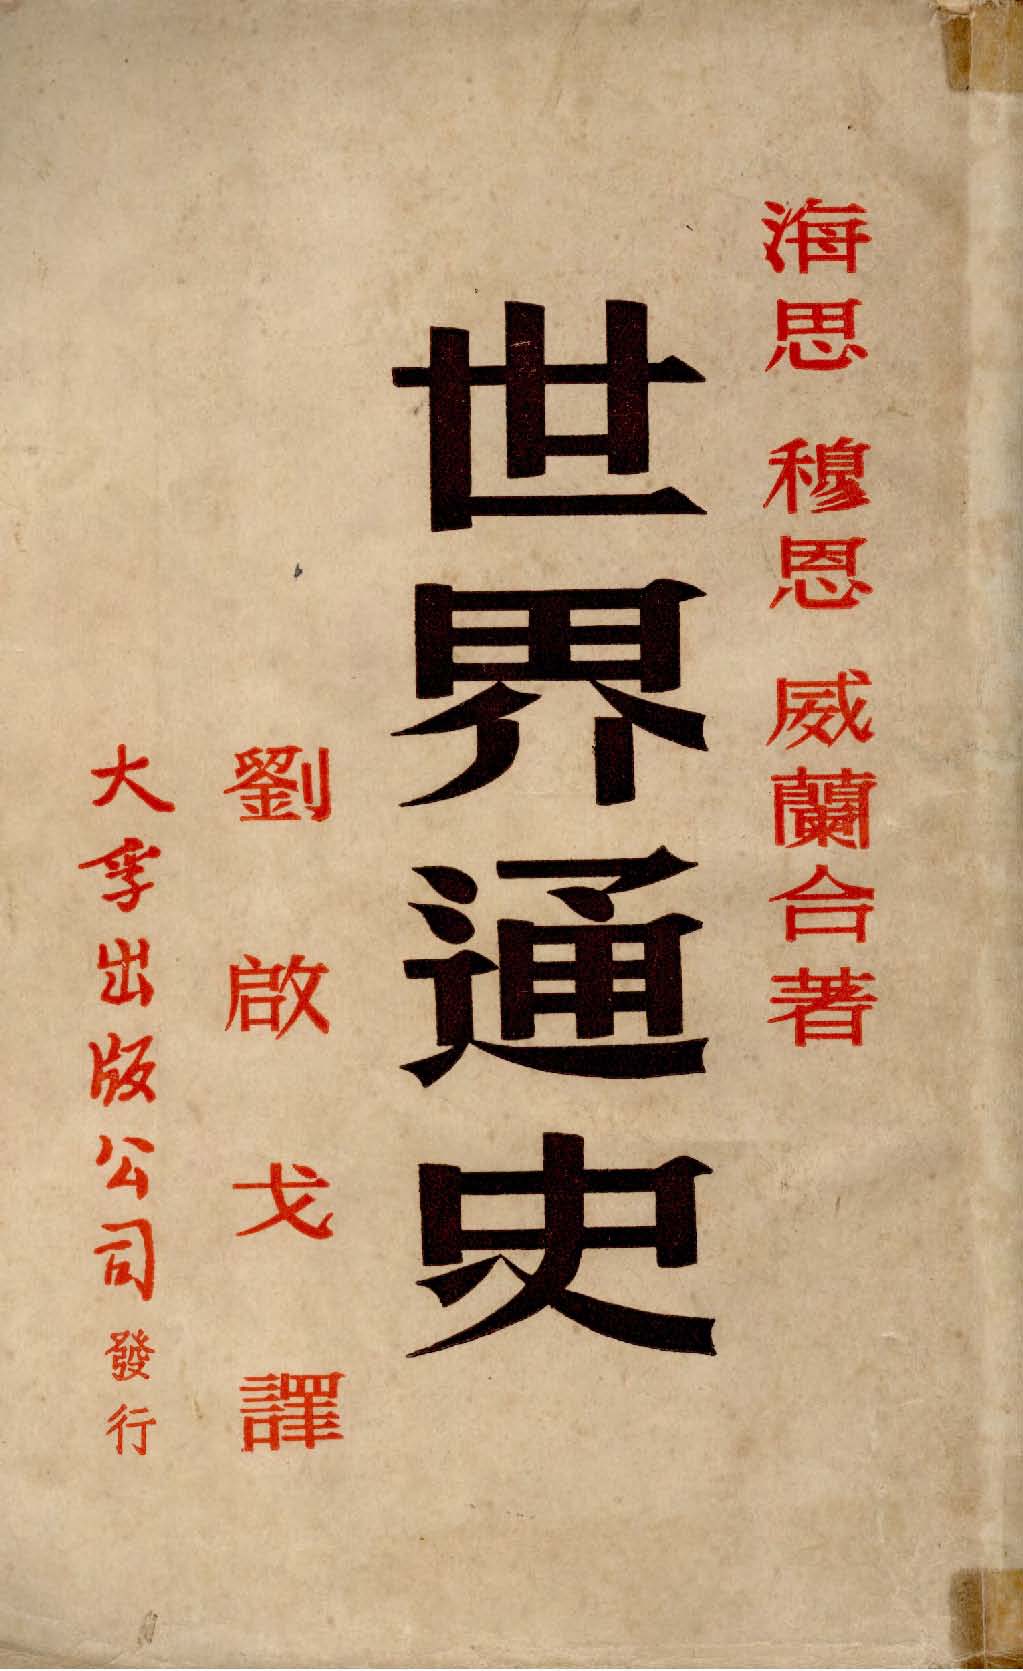 海思 穆恩 威蘭合著
世界通史
劉啟戈譯
大孚出版公司發行